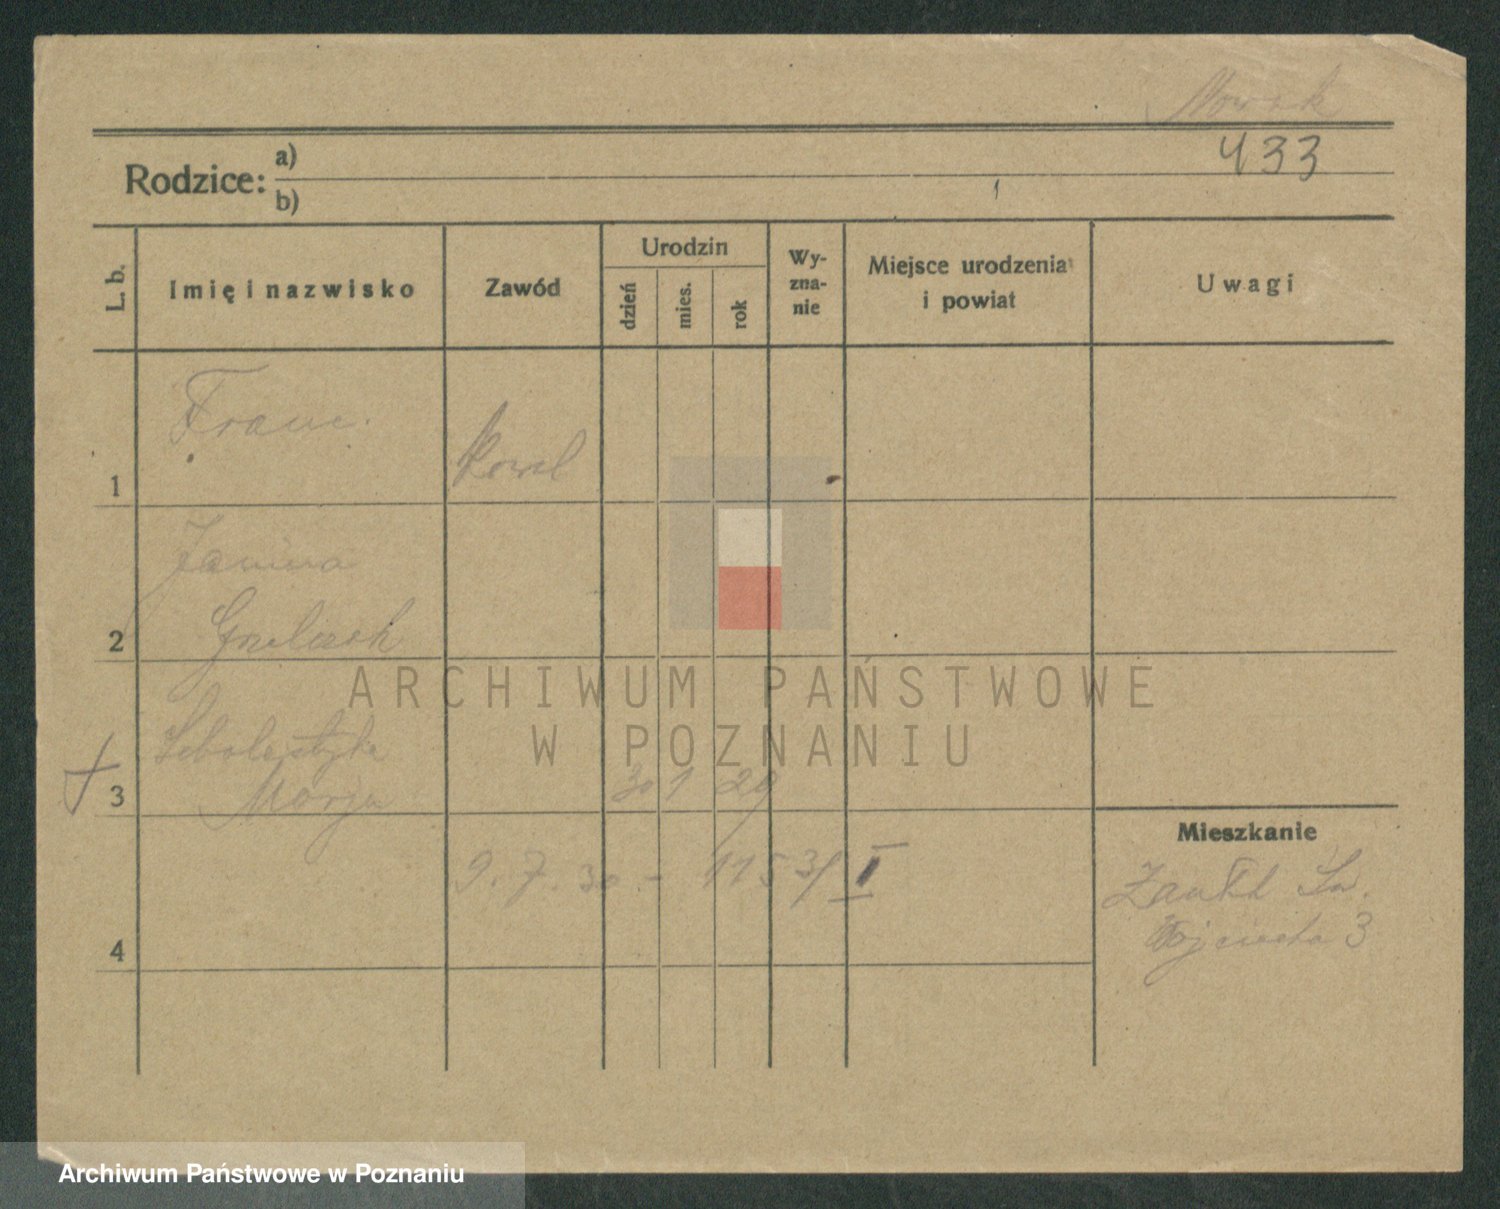 Nowak
433
Rodzice: a)
b)
L. b.
Imię i nazwisko
Zawód
Urodzin
dzień
mies.
rok
Wy-
zna-
nie
Miejsce urodzenia
i powiat
Uwagi
Franc.
1
kowal
Janina
2
Grelczak
ARCHIWUM PAŃSTWOWE
W POZNANIU
Scholastyka
3
Marja
30 1 29
Mieszkanie
9. 7. 30 - 1153/I
3
4
Archiwum Państwowe w Poznaniu